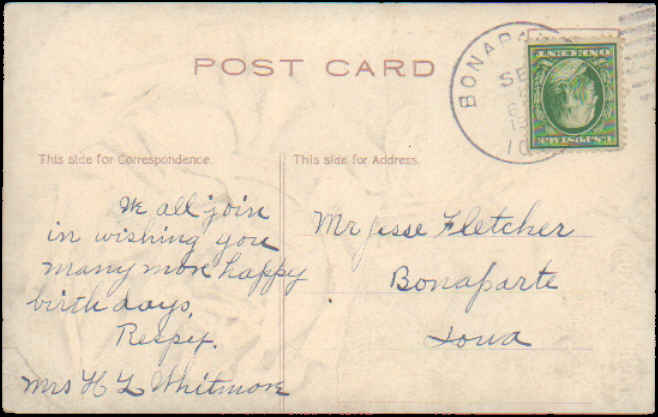 POST CARD
BONAPAR
SE
10
ONE CENT
U.S. POSTAGE
This side for Correspondence.
This side for Address.
We all join
in wishing you
many more happy
birth days,
Respix.
Mrs H L Whitmore
Mr Jesse Fletcher
Bonaparte
Iowa